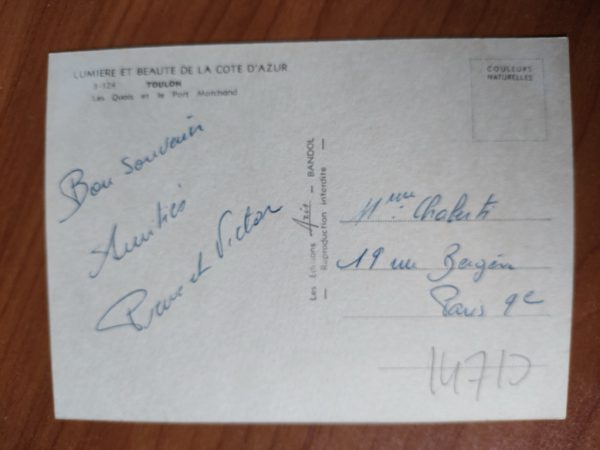 LUMIERE ET BEAUTE DE LA COTE D'AZUR
3-124 TOULON
Les Quais et le Port Marchand
COULEURS
NATURELLES
Bon souvenir
Amitiés
et Victor
Les Editions Aris — BANDOL
— Reproduction interdite —
Mme
19 rue Bergère
Paris 9e